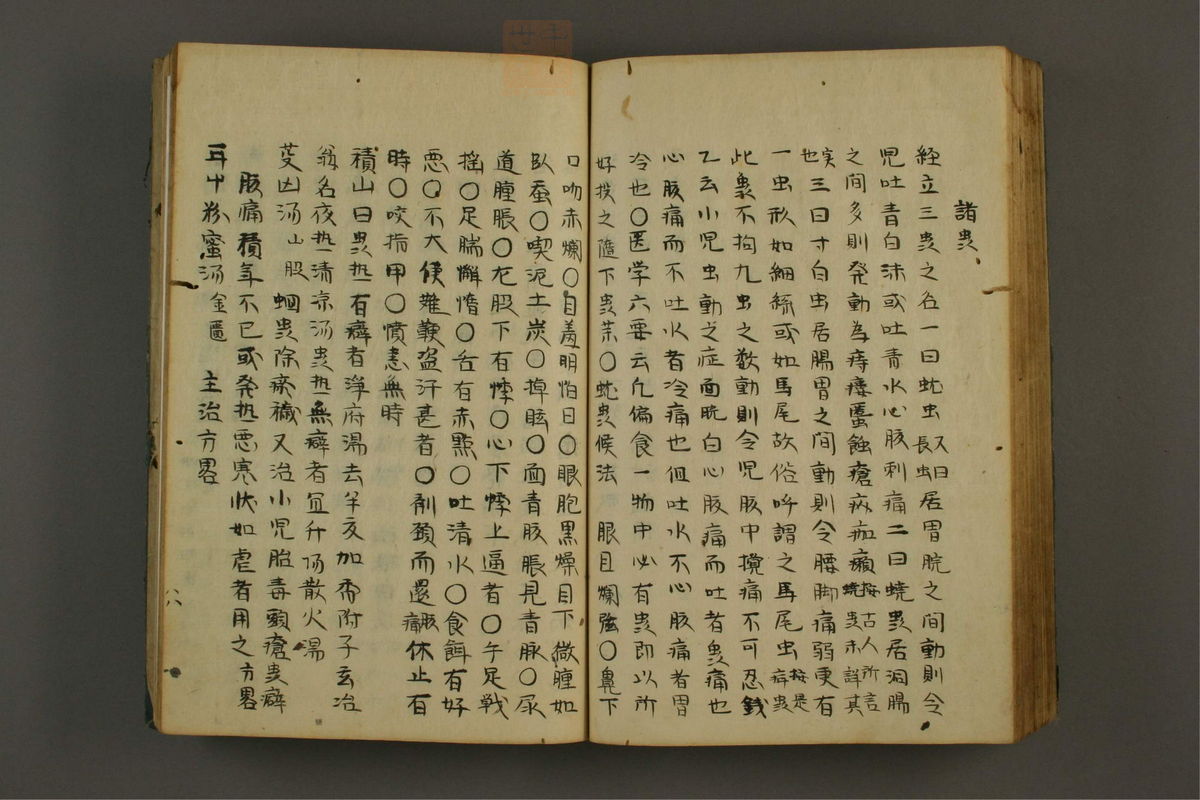 諸蛊
経立三蛊之名一曰蚘虫又曰長虫居胃脘之間動則令
児吐青白沫或吐青水心腹刺痛二曰蟯蛊居洞腸
之間多則発動為痔瘻䘌蝕瘡疥疽癩按古人所言蟯蛊未詳其
実也三曰寸白虫居腸胃之間動則令腰脚痛弱更有
一虫形如細絲或如馬尾故俗呼謂之馬尾虫按是病蛊
此蛊不拘九虫之数動則令児腹中攪痛不可忍銭
乙云小児虫動之症面㿠白心腹痛而吐者蛊痛也
心腹痛而不吐水者冷痛也但吐水不心腹痛者胃
冷也〇医学六要云凡偏食一物中必有蛊即以所
好投之随下蛊薬〇蚘蛊候法 眼目爛弦〇鼻下
口吻赤爛〇自羞明怕日〇眼胞黒燥目下微腫如
臥蚕〇喫泥土炭〇掉眩〇面青腹脹見青脉〇尿
道腫脹〇左股下有悸〇心下悸上逼者〇手足戦
揺〇足腨懈惰〇舌有赤点〇吐清水〇食餌有好
悪〇不大便難鞕盗汗甚者〇削頚而還腹痛休止有
時〇咬指甲〇憤恚無時
積山曰蛊热有癖者浄府湯去半夏加香附子玄治
翁名夜热清凉汤蛊热無癖者宜升陽散火湯
芟凶汤山股 蛔蛊除瘀穢又治小児胎毒頭瘡蛊癖
腹痛積年不已或発热悪寒状如瘧者用之方畧
耳十粉蜜汤金匱 主治方畧
八